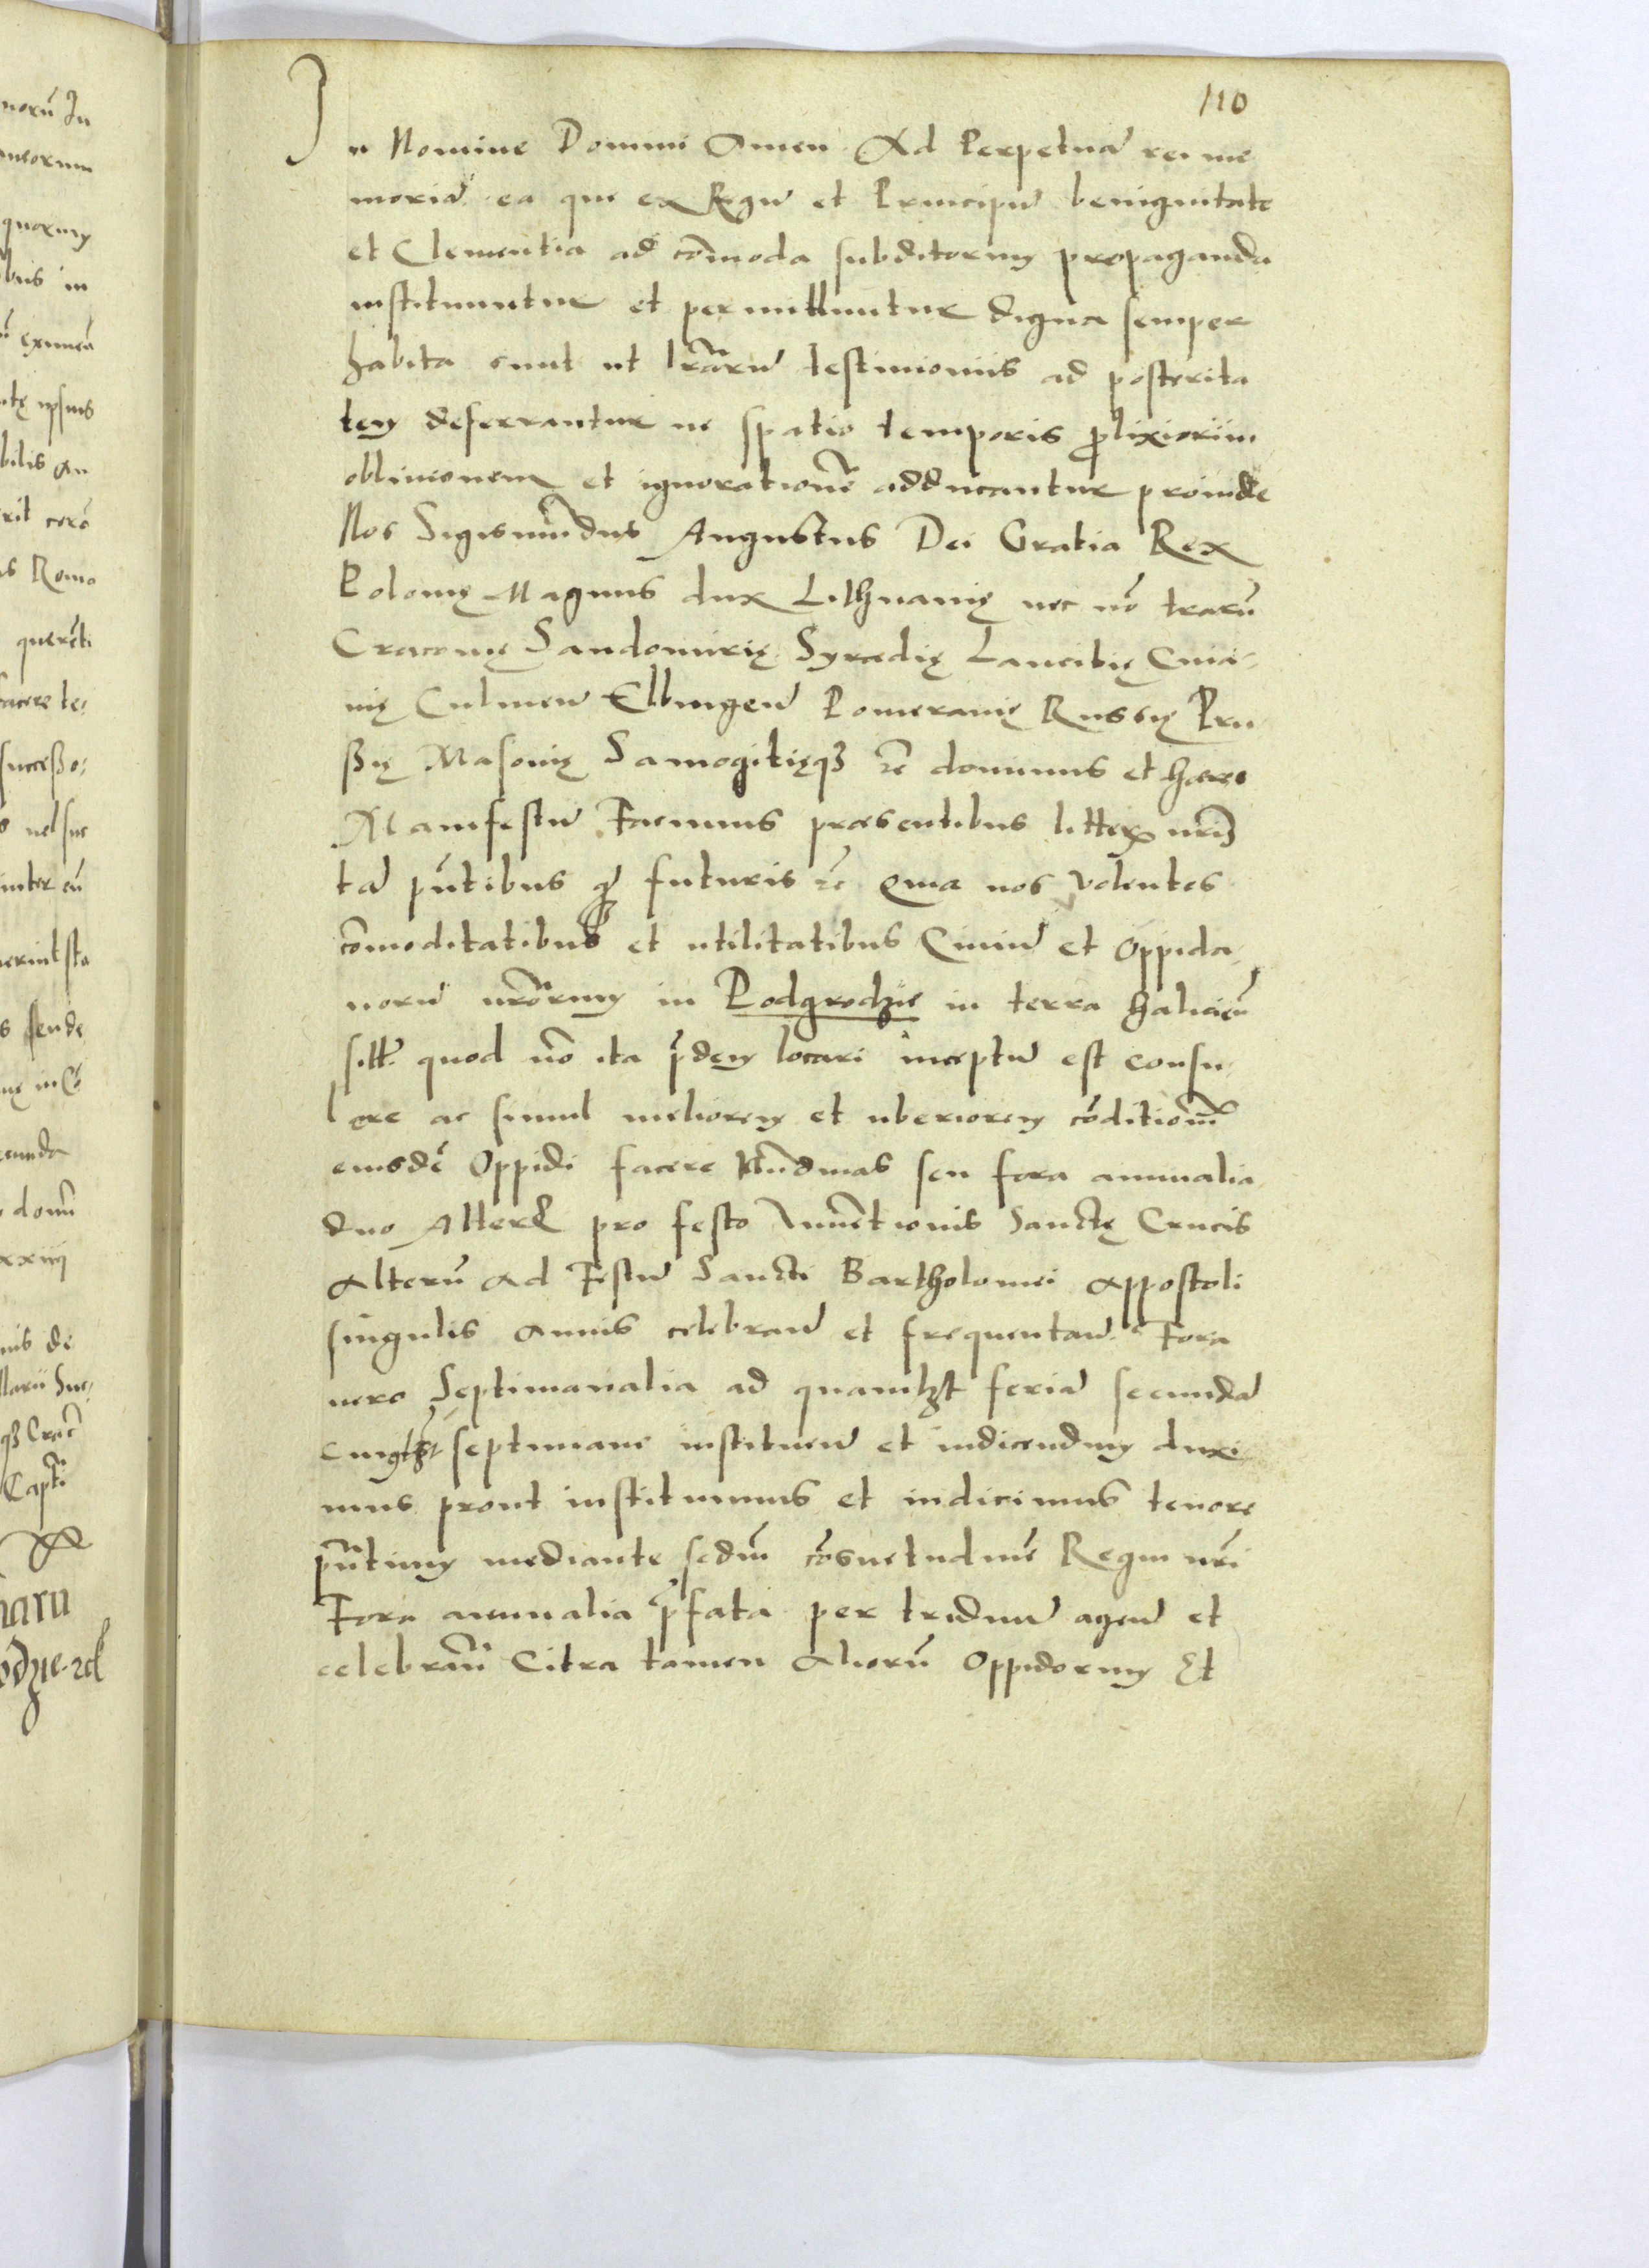 110
In Nomine Domini Amen Ad Perpetuā rei me
moriā ea que ex Regū et Principū benignitate
et Clementia ad cōmoda subditorum propaganda
instituuntur et permittuntur digna semper
habita sunt ut lrārū testimoniis ad posterita
tem deferrantur ne spatio temporis plixiori in
oblivionem et ignorationē adducantur proinde
Nos Sigismūdus Augustus Dei Gratia Rex
Polonię Magnus dux Lithuanię nec nō trarū
Cracovię Sandomirię Syradię Lancibię Cuia-
vię Culmeñ Elbingeñ Pomeranię Russię Pru
ssię Masovię Samogitięq3 rē dominus et haeres
Manifestū Facimus praesentibus litteris nris
tā pñtibus q̄ futuris rē Quia nos volentes
cōmoditatibus et utilitatibus Civiū et Oppida
norū nrōrum in Podgrodzie in terra Halicieñ
sitt. quod nō ita pridem locari inceptū est consu
lere ac simul meliorem et uberiorem cōditionē
eiusdē Oppidi facere Nūdinas seu fora annualia
duo Alterū pro festo Inventionis Sanctę Crucis
Alterū Ad Festū Sancti Bartholomei Appostoli
singulis Annis celebrañ et frequentañ Fora
vero Septimanalia ad quamlzt feriā secundā
cuiuslzt septimane instituen̄ et indicendum duxi
mus prout instituimus et indicimus tenore
pñtium mediante sedm̄ cōsuetudinē Regni nrī
Fora annualia pfata per triduū ageñ et
celebrañ Citra tamen Aliorū Oppidorum Et